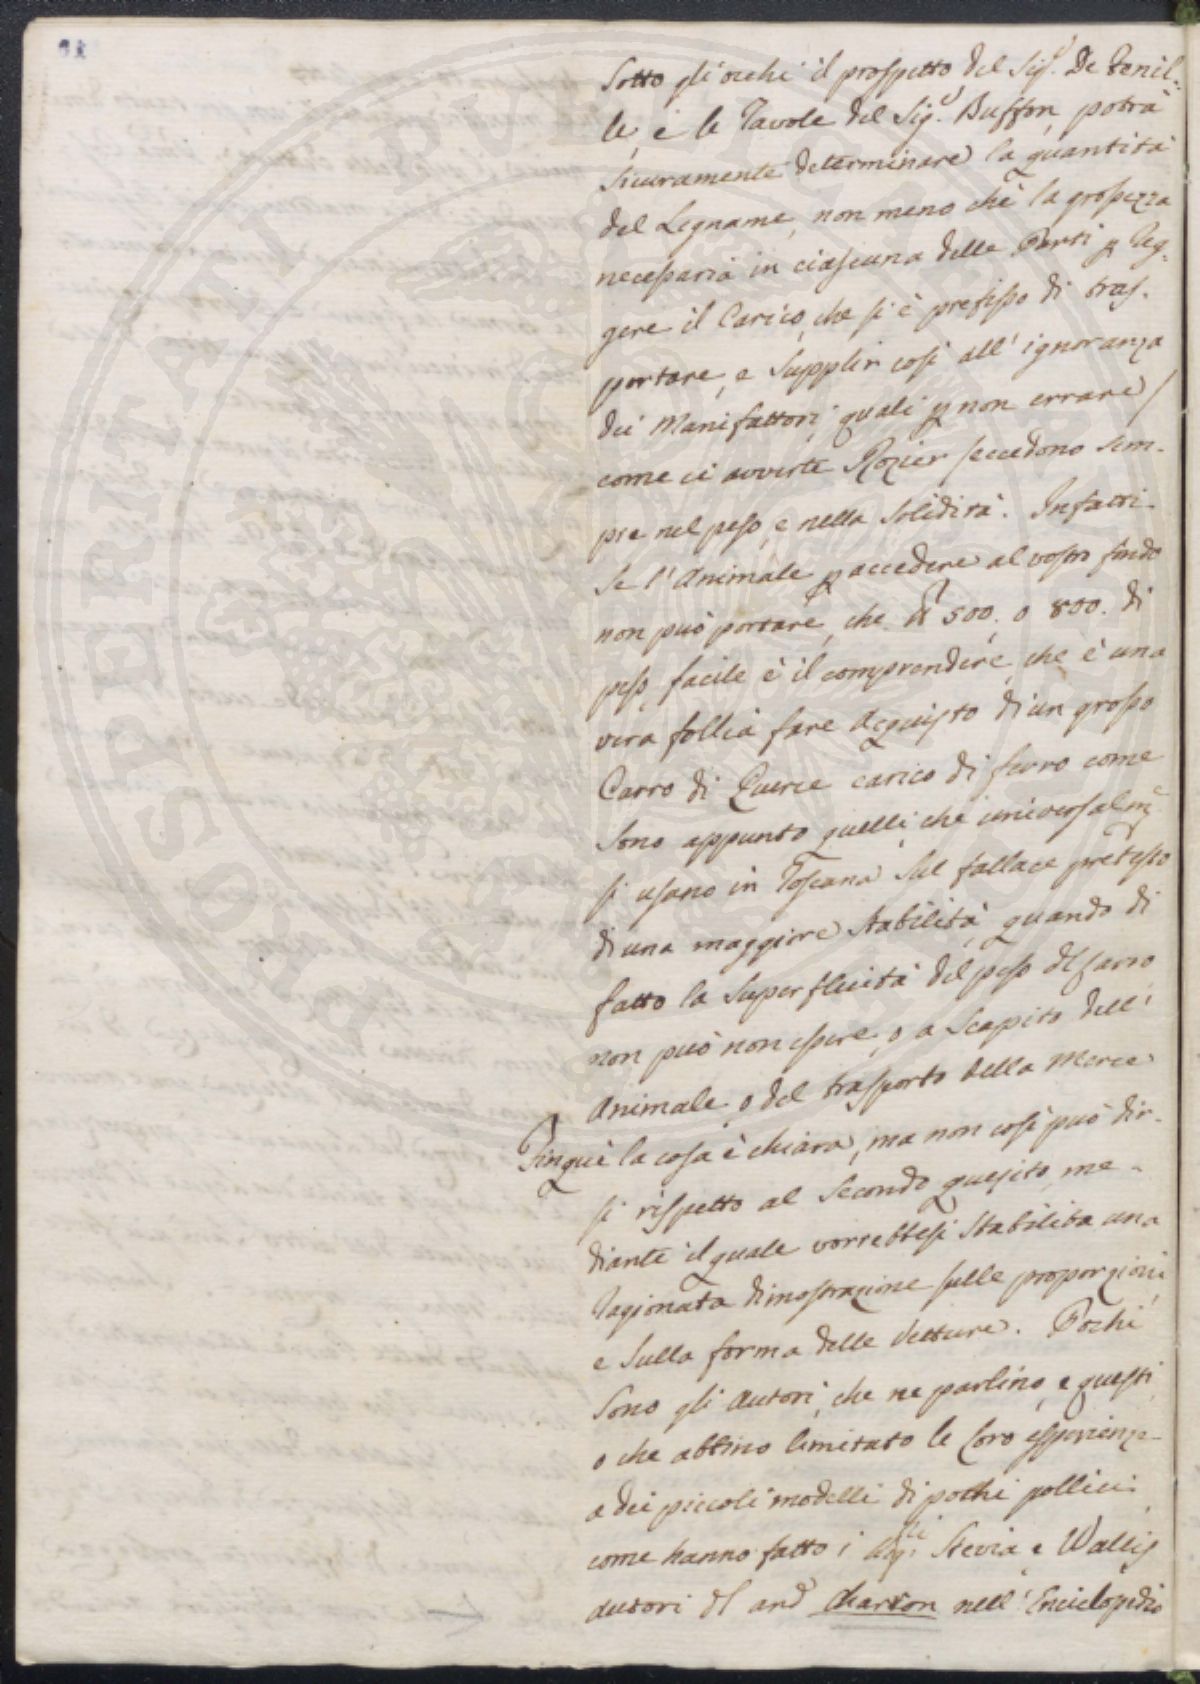 sotto gli occhi il prospetto del Sig.r De Fenil-
le, e le Tavole del Sig.r Buffon, potrà
sicuramente determinare la quantità
del Legname, non meno che la grossezza
necessaria in ciascuna delle Parti p Reg-
gere il Carico, che si è prefisso di tras-
portare, e supplir così all' ignoranza
dei Manifattori, quali p non errare /
come ci avverte Rozier / eccedono sem-
pre nel peso, e nella solidità. Infatti
se l'Animale p accedere al vostro fondo
non può portare, che 500. o 800. di
peso, facile è il comprendere, che è una
vera follia fare acquisto di un grosso
Carro di Querce carico di ferro come
sono appunto quelli, che universalm.e
si usano in Toscana sul fallace pretesto
di una maggiore stabilità, quando di
fatto la superfluità del peso del carro
non può non essere, o a scapito dell'
Animale, o del trasporto della Merce
Finquì la cosa è chiara, ma non così può dir-
si rispetto al secondo quesito, me-
diante il quale vorrebbesi stabilita una
ragionata dimostrazione sulle proporzioni,
e sulla forma delle Vetture. Pochi
sono gli Autori, che ne parlino, e questi
o che abbino limitato le loro esperienze
a dei piccoli modelli di pochi pollici
come hanno fatto i Sig.ri Stevia, e Wallis
autori del Charron nell' Enciclopedia
PROSPERITATI PUBLICAE